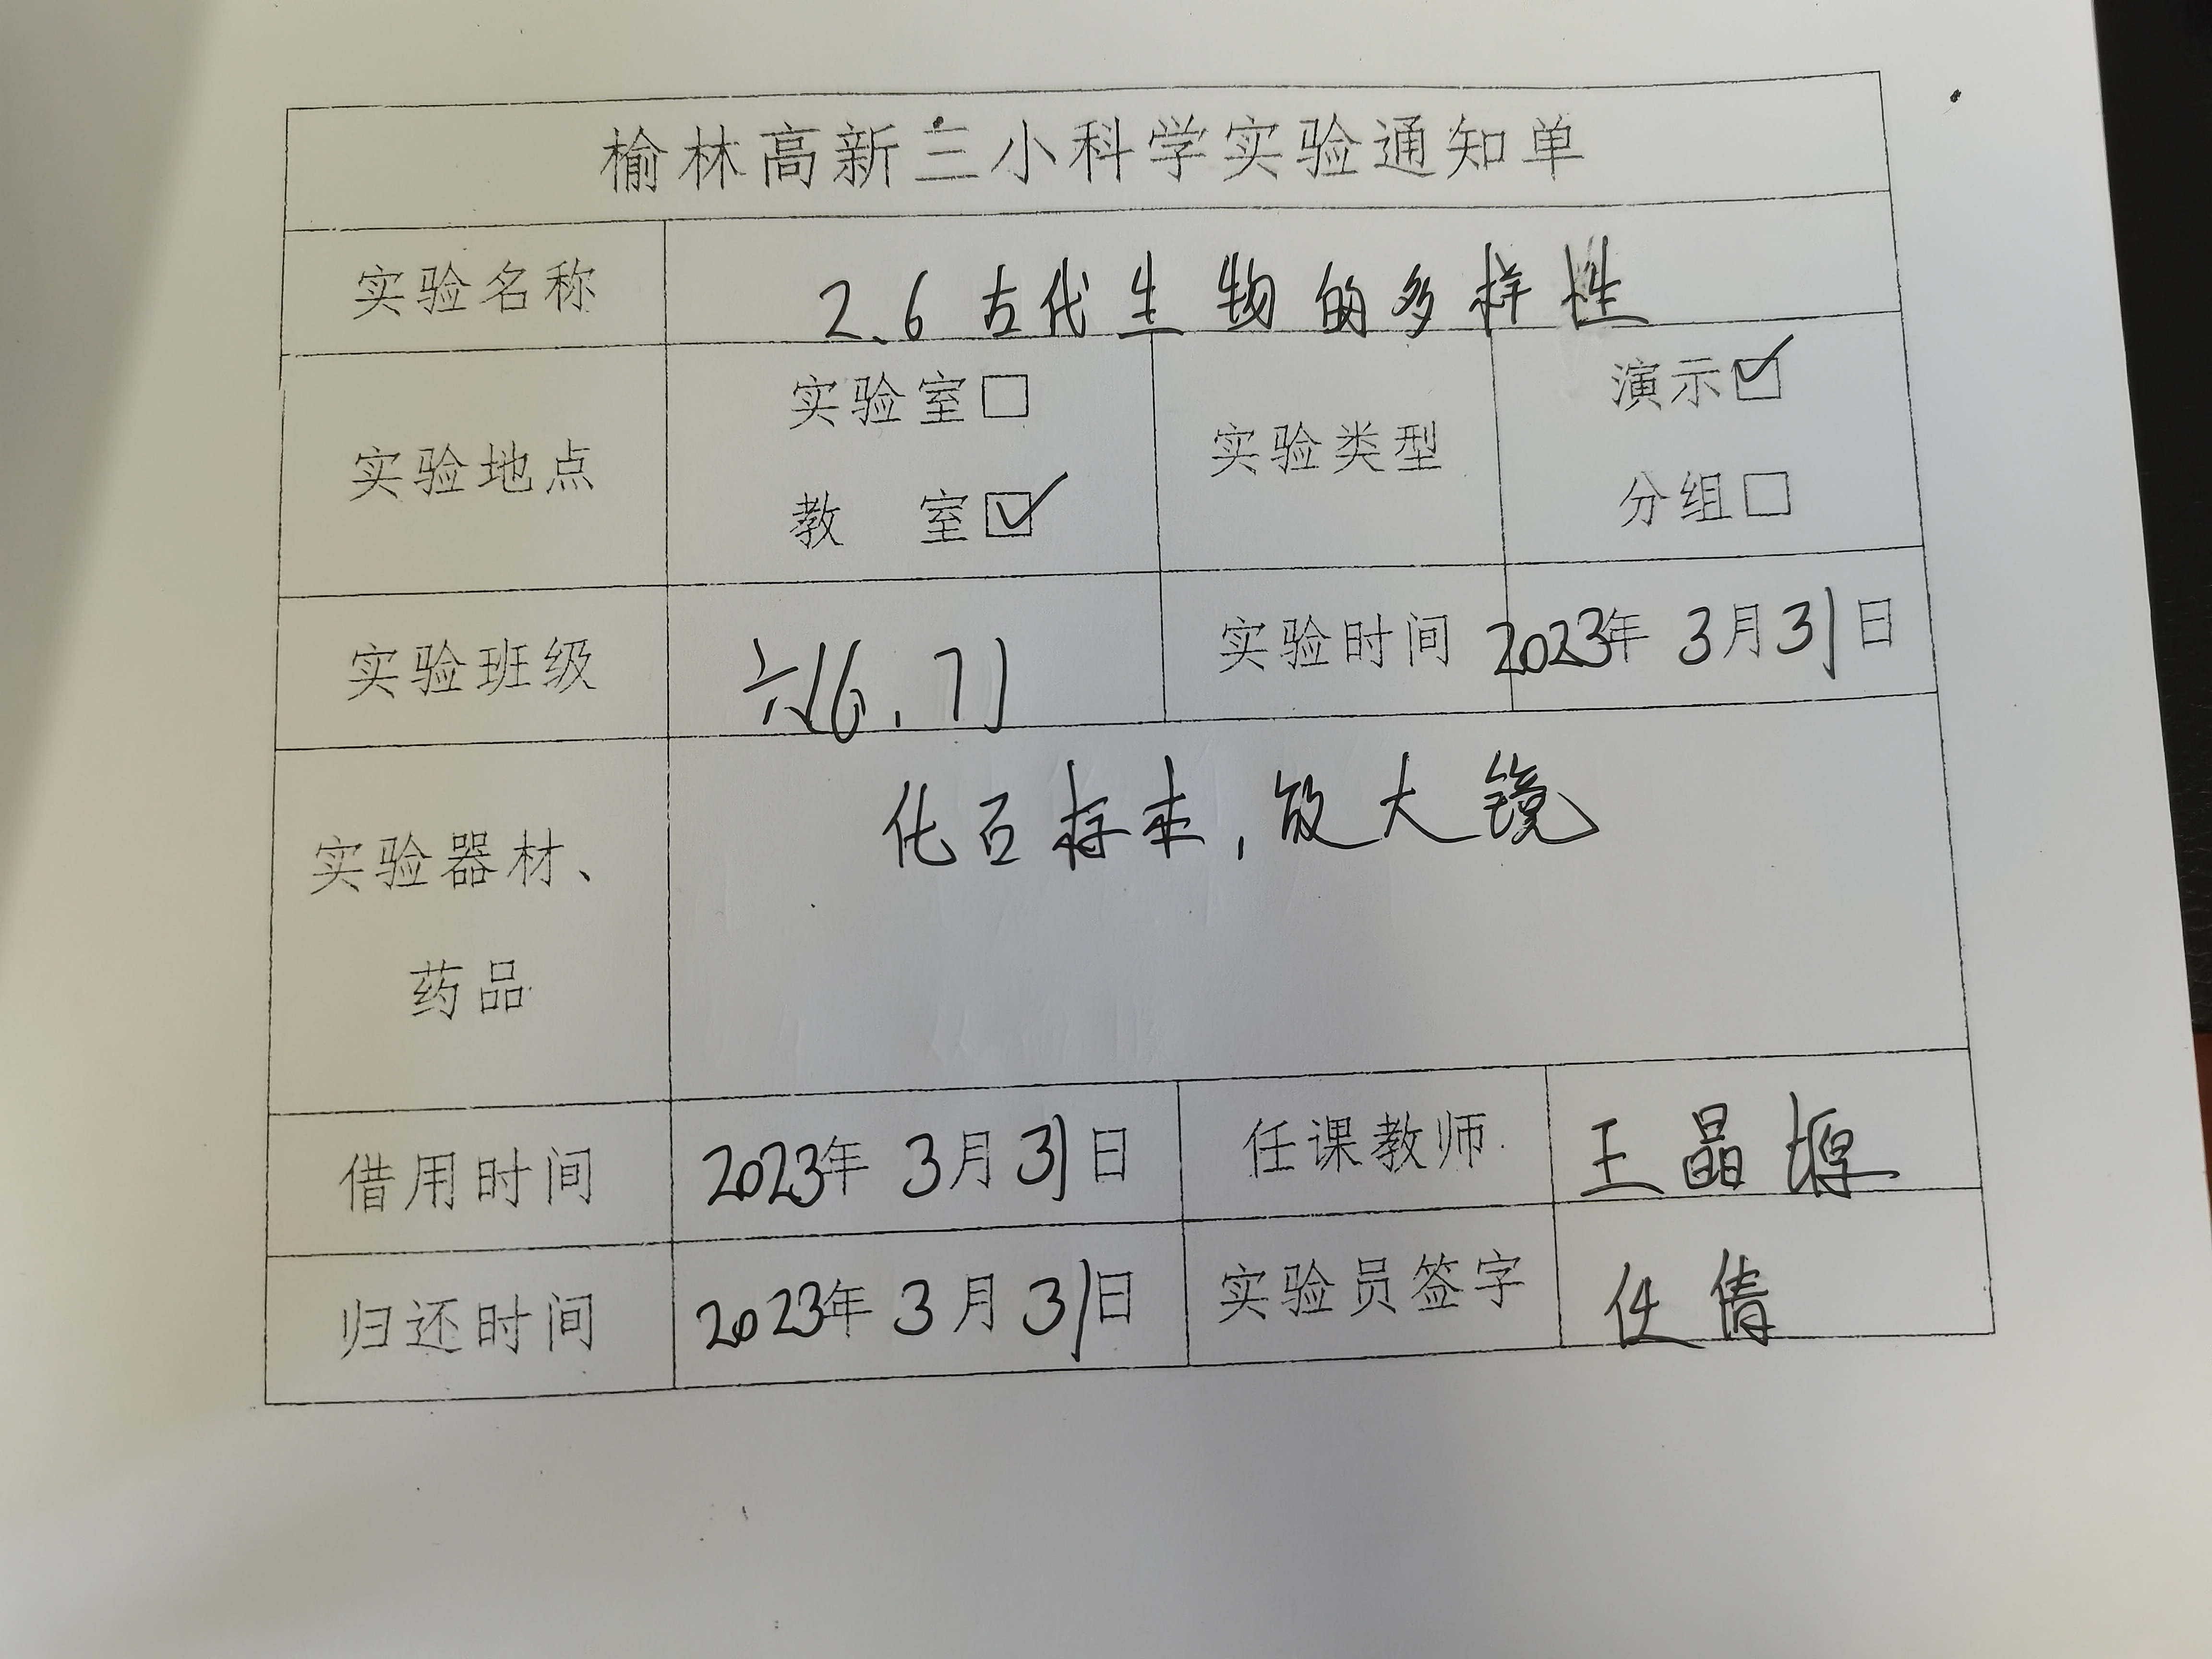 榆林高新三小科学实验通知单
实验名称 2.6 古代生物的多样性
实验地点 实验室□ 教 室☑ 实验类型 演示☑ 分组□
实验班级 六(6.7) 实验时间 2023年 3月31日
实验器材、药品 化石标本,放大镜
借用时间 2023年 3月31日 任课教师 王晶
归还时间 2023年 3月31日 实验员签字 任倩